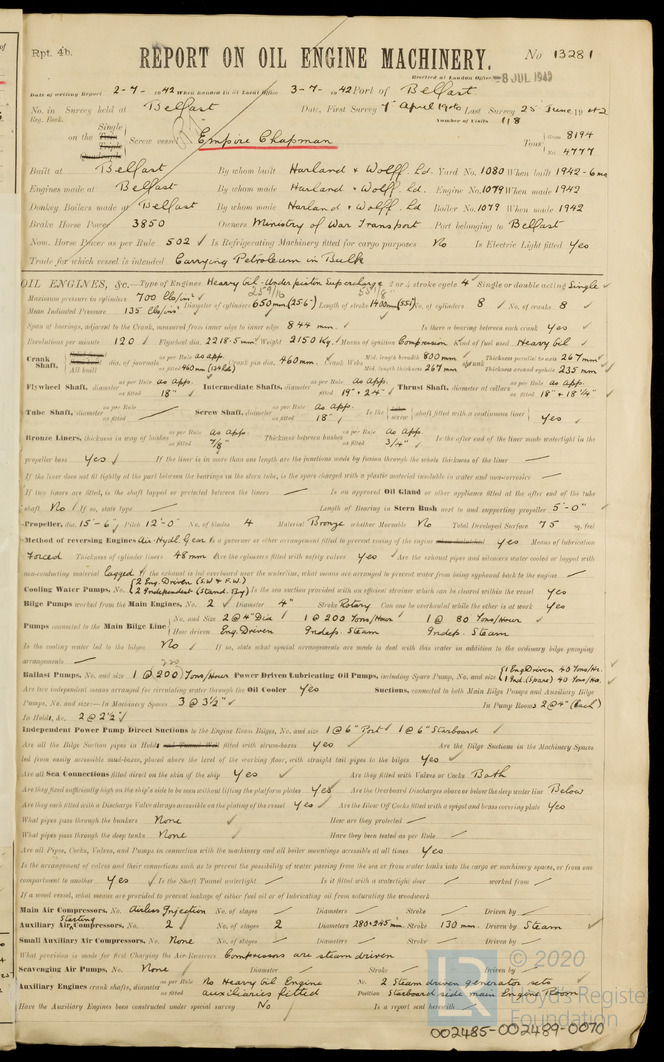 Rpt. 4b.
REPORT ON OIL ENGINE MACHINERY.
No 13281
Received at London Office -8 JUL 1942
Date of writing Report 2-7-1942 When handed in at Local Office 3-7-1942 Port of Belfast
No. in Survey held at Belfast Date, First Survey 1st April 1940 Last Survey 25 June 1942
Reg. Book. Number of Visits 118
on the Single Screw vessel Empire Chapman Tons Gross 8194
Net 4777
Built at Belfast By whom built Harland & Wolff. Ld. Yard No. 1080 When built 1942-6 mo
Engines made at Belfast By whom made Harland & Wolff. Ld. Engine No. 1079 When made 1942
Donkey Boilers made at Belfast By whom made Harland & Wolff. Ld Boiler No. 1079 When made 1942
Brake Horse Power 3850 Owners Ministry of War Transport Port belonging to Belfast
Nom. Horse Power as per Rule 502 Is Refrigerating Machinery fitted for cargo purposes No Is Electric Light fitted Yes
Trade for which vessel is intended Carrying Petroleum in Bulk
OIL ENGINES, &c.—Type of Engines Heavy Oil - Under piston Supercharge 2 or 4 stroke cycle 4 Single or double acting Single
Maximum pressure in cylinders 700 lbs/in² Diameter of cylinders 650 mm Length of stroke 1400 mm No. of cylinders 8 No. of cranks 8
Mean Indicated Pressure 135 lbs/in²
Span of bearings, adjacent to the Crank, measured from inner edge to inner edge 844 mm. Is there a bearing between each crank Yes
Revolutions per minute 120 Flywheel dia. 2218.5 mm Weight 2150 Kg. Means of ignition Compression Kind of fuel used Heavy Oil
Crank Shaft, dia. of journals as per Rule as app. as fitted 460 mm Crank pin dia. 460 mm. Crank Webs Mid. length breadth 800 mm Thickness parallel to axis 267 mm
All built Mid. length thickness 267 mm shrunk Thickness around eyehole 235 mm
Flywheel Shaft, diameter as per Rule as app. as fitted 18" Intermediate Shafts, diameter as per Rule as app. as fitted 19" & 24" Thrust Shaft, diameter at collars as per Rule as app. as fitted 18" & 18¼"
Tube Shaft, diameter as per Rule as fitted — Screw Shaft, diameter as per Rule as app. as fitted 18" Is the screw shaft fitted with a continuous liner Yes
Bronze Liners, thickness in way of bushes as per Rule as app. as fitted 7/8" Thickness between bushes as per Rule as app. as fitted 3/4" Is the after end of the liner made watertight in the
propeller boss Yes If the liner is in more than one length are the junctions made by fusion through the whole thickness of the liner —
If the liner does not fit tightly at the part between the bearings in the stern tube, is the space charged with a plastic material insoluble in water and non-corrosive —
If two liners are fitted, is the shaft lapped or protected between the liners — Is an approved Oil Gland or other appliance fitted at the after end of the tube
shaft No If so, state type — Length of Bearing in Stern Bush next to and supporting propeller 5'-0"
Propeller, dia. 15'-6" Pitch 12'-0" No. of blades 4 Material Bronze whether Moveable No Total Developed Surface 75 sq. feet
Method of reversing Engines Air-Hydl. Gear Is a governor or other arrangement fitted to prevent racing of the engine Yes Means of lubrication
Forced Thickness of cylinder liners 48 mm Are the cylinders fitted with safety valves Yes Are the exhaust pipes and silencers water cooled or lagged with
non-conducting material lagged If the exhaust is led overboard near the waterline, what means are arranged to prevent water from being syphoned back to the engine —
Cooling Water Pumps, No. 2 Eng. Driven (S.W & F.W.)
2 Independent (Stand. By) Is the sea suction provided with an efficient strainer which can be cleared within the vessel Yes
Bilge Pumps worked from the Main Engines, No. 2 Diameter 4" Stroke Rotary Can one be overhauled while the other is at work Yes
Pumps connected to the Main Bilge Line No. and Size 2 @ 4" Dia 1 @ 200 Tons/Hour 1 @ 80 Tons/Hour
How driven Eng. Driven Indep. Steam Indep. Steam
Is the cooling water led to the bilges No If so, state what special arrangements are made to deal with this water in addition to the ordinary bilge pumping
arrangements —
Ballast Pumps, No. and size 1 @ 200 Tons/Hour Power Driven Lubricating Oil Pumps, including Spare Pump, No. and size 1 Eng Driven 40 Tons/Hr.
1 Ind. (Spare) 40 Tons/Hr.
Are two independent means arranged for circulating water through the Oil Cooler Yes Suctions, connected to both Main Bilge Pumps and Auxiliary Bilge
Pumps, No. and size:—In Machinery Spaces 3 @ 3½" In Pump Room 2 @ 4" (Each)
In Holds, &c. 2 @ 2½"
Independent Power Pump Direct Suctions to the Engine Room Bilges, No. and size 1 @ 6" Port 1 @ 6" Starboard
Are all the Bilge Suction pipes in Holds and Tunnel Well fitted with strum-boxes Yes Are the Bilge Suctions in the Machinery Spaces
led from easily accessible mud-boxes, placed above the level of the working floor, with straight tail pipes to the bilges Yes
Are all Sea Connections fitted direct on the skin of the ship Yes Are they fitted with Valves or Cocks Both
Are they fixed sufficiently high on the ship's side to be seen without lifting the platform plates Yes Are the Overboard Discharges above or below the deep water line Below
Are they each fitted with a Discharge Valve always accessible on the plating of the vessel Yes Are the Blow Off Cocks fitted with a spigot and brass covering plate Yes
What pipes pass through the bunkers None How are they protected —
What pipes pass through the deep tanks None Have they been tested as per Rule —
Are all Pipes, Cocks, Valves, and Pumps in connection with the machinery and all boiler mountings accessible at all times Yes
Is the arrangement of valves and their connections such as to prevent the possibility of water passing from the sea or from water tanks into the cargo or machinery spaces, or from one
compartment to another Yes Is the Shaft Tunnel watertight — Is it fitted with a watertight door — worked from —
If a wood vessel, what means are provided to prevent leakage of either fuel oil or of lubricating oil from saturating the woodwork
Main Air Compressors, No. Airless Injection No. of stages — Diameters — Stroke — Driven by —
Auxiliary Starting Air Compressors, No. 2 No. of stages 2 Diameters 280 & 245 mm Stroke 130 mm. Driven by Steam
Small Auxiliary Air Compressors, No. None No. of stages — Diameters — Stroke — Driven by —
What provision is made for first Charging the Air Receivers Compressors are steam driven
Scavenging Air Pumps, No. None Diameter — Stroke — Driven by —
Auxiliary Engines crank shafts, diameter as per Rule No Heavy Oil Engine No. 2 Steam driven generator sets
as fitted auxiliaries fitted Position Starboard side main Engine Room
Have the Auxiliary Engines been constructed under special survey No Is a report sent herewith —
© 2020
Lloyd's Register
Foundation
002485-002489-0070